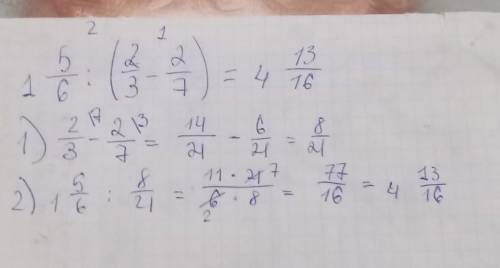 1 5/6 : (2/3 - 2/7) = 4 13/16
1) 2/3\7 - 2/7\3 = 14/21 - 6/21 = 8/21
2) 1 5/6 : 8/21 = 11 · 21 7/6 2 · 8 = 77/16 = 4 13/16